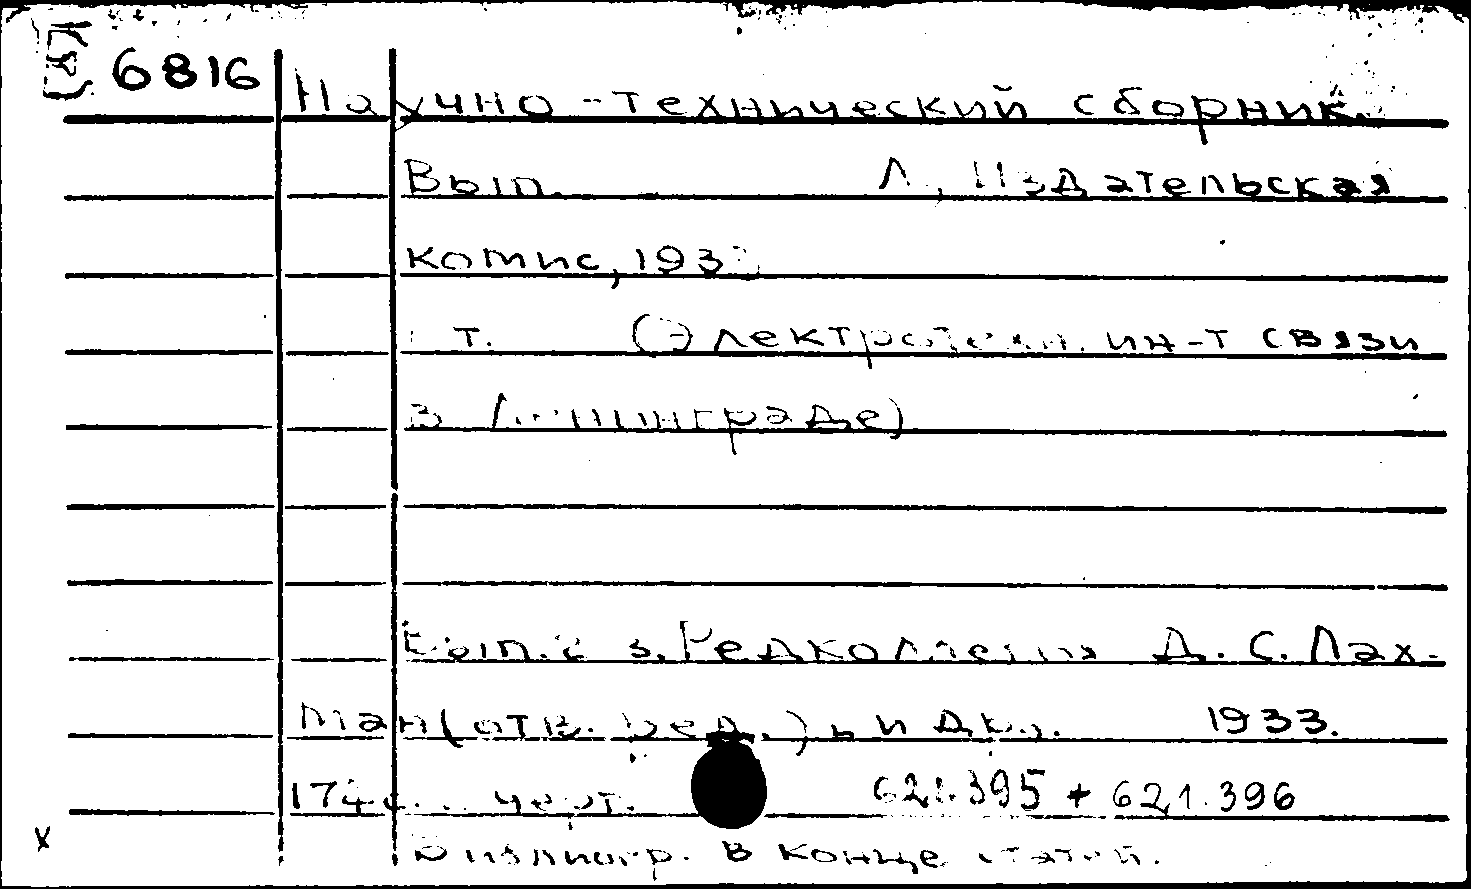 6816 Научно-технический сборник.
Вып. Л, Издательская
комис, 193
т. (Электротехн. ин-т связи
в Ленинграде)
Вып.2 3. Редколлегия Д. С. Лах-
ман (отв. ред.) и др. 1933.
174 с. черт. 621.395 + 621.396
Библиогр. в конце статей.
x